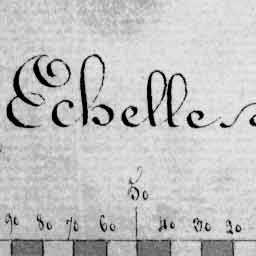 Echelle
50
90 80 70 60 40 30 20